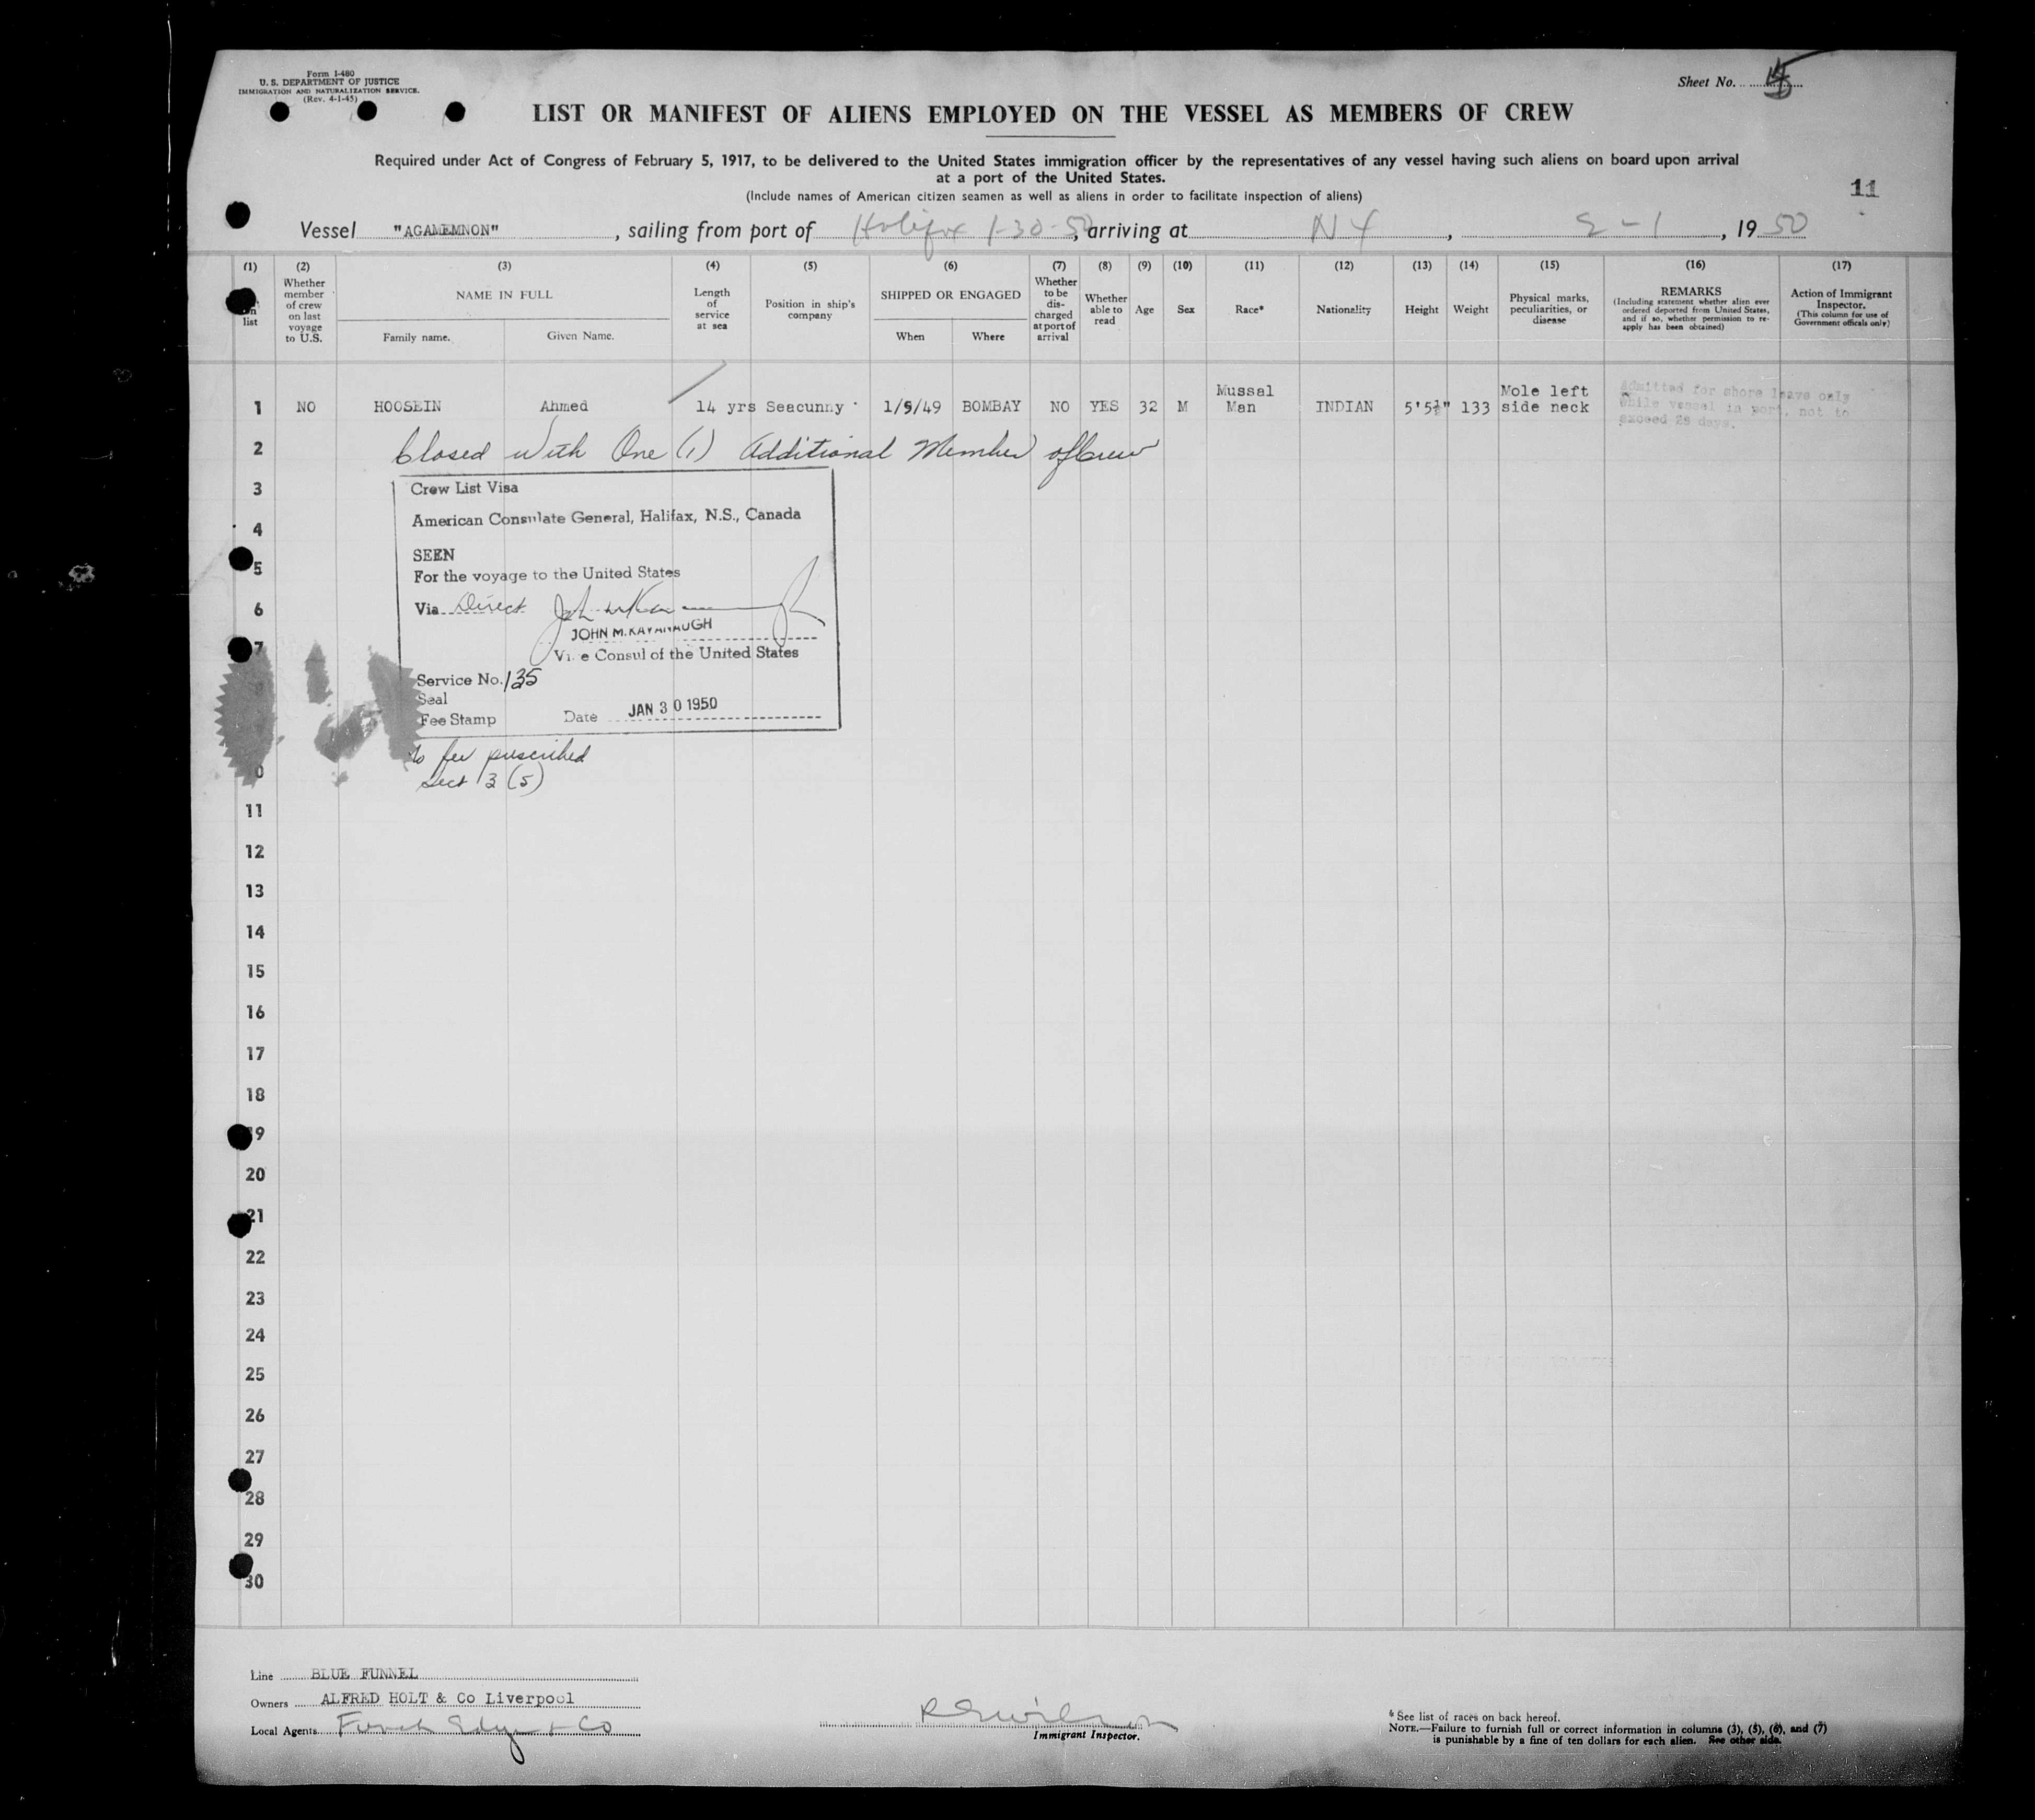 Form I-480
U. S. DEPARTMENT OF JUSTICE
IMMIGRATION AND NATURALIZATION SERVICE.
(Rev. 4-1-45)
Sheet No.
LIST OR MANIFEST OF ALIENS EMPLOYED ON THE VESSEL AS MEMBERS OF CREW
Required under Act of Congress of February 5, 1917, to be delivered to the United States immigration officer by the representatives of any vessel having such aliens on board upon arrival
at a port of the United States.
(Include names of American citizen seamen as well as aliens in order to facilitate inspection of aliens)
11
Vessel "AGAMEMNON", sailing from port of Halifax 1-30-50, arriving at NY, 2-1, 1950
(1) (2) (3) (4) (5) (6) (7) (8) (9) (10) (11) (12) (13) (14) (15) (16) (17)
list
Whether member of crew on last voyage to U.S.
NAME IN FULL
Family name. Given Name.
Length of service at sea
Position in ship's company
SHIPPED OR ENGAGED
When Where
Whether to be discharged at port of arrival
Whether able to read
Age
Sex
Race*
Nationality
Height
Weight
Physical marks, peculiarities, or disease
REMARKS
(Including statement whether alien ever ordered deported from United States, and if so, whether permission to re-apply has been obtained)
Action of Immigrant Inspector.
(This column for use of Government officals only)
1 NO HOOSEIN Ahmed 14 yrs Seacunny 1/9/49 BOMBAY NO YES 32 M Mussal Man INDIAN 5'5½" 133 Mole left side neck
Admitted for shore leave only
while vessel in port, not to
exceed 29 days.
2 Closed with One (1) Additional Member of Crew
3
Crew List Visa
American Consulate General, Halifax, N.S., Canada
4
SEEN
5
For the voyage to the United States
6
Via Direct
JOHN M. KAVANAUGH
7
Vice Consul of the United States
Service No. 135
Seal
Fee Stamp Date JAN 30 1950
No fee prescribed
Sect 3 (5)
11
12
13
14
15
16
17
18
19
20
21
22
23
24
25
26
27
28
29
30
Line BLUE FUNNEL
Owners ALFRED HOLT & Co Liverpool
Local Agents Funch Edye & Co
Immigrant Inspector.
* See list of races on back hereof.
NOTE.—Failure to furnish full or correct information in columns (3), (5), (6), and (7)
is punishable by a fine of ten dollars for each alien. See other side.